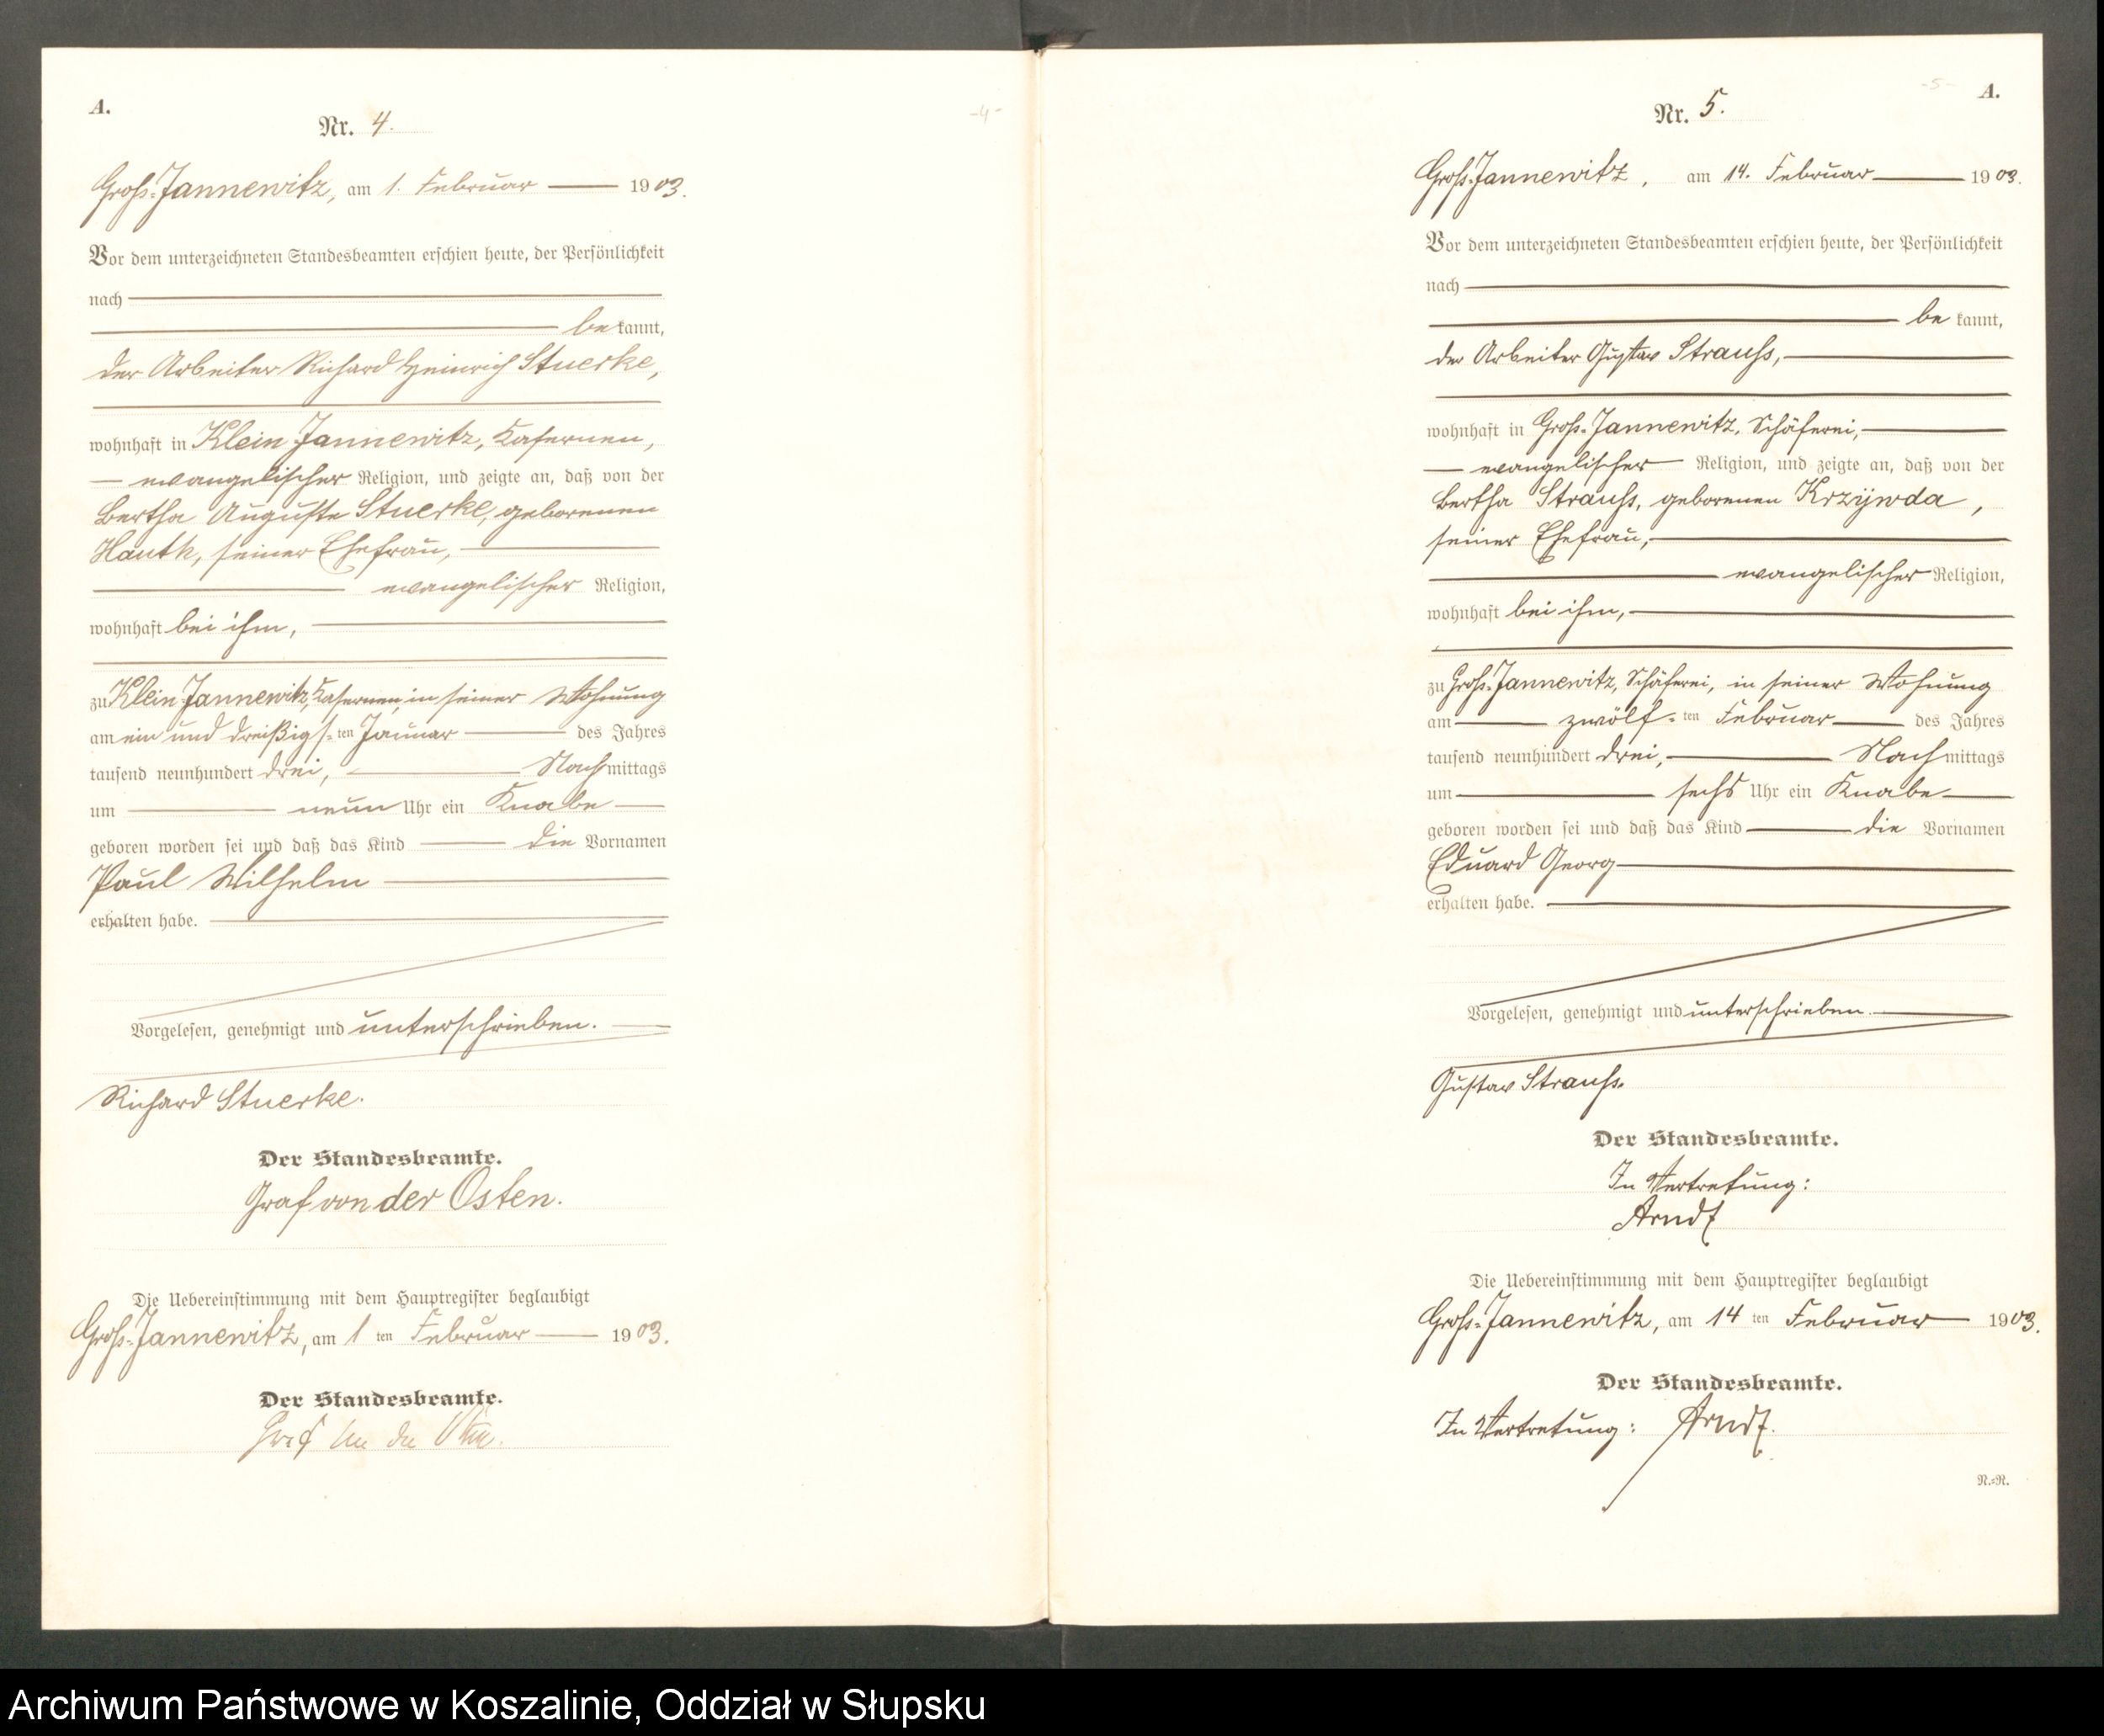 A.
Nr. 4.
Groß-Jannewitz, am 1. Februar 1903.
Vor dem unterzeichneten Standesbeamten erschien heute, der Persönlichkeit
nach
bekannt,
der Arbeiter Richard Heinrich Stuerke,
wohnhaft in Klein Jannewitz, Kasernen,
evangelischer Religion, und zeigte an, daß von der
Bertha Auguste Stuerke, geborenen
Hauth, seiner Ehefrau,
evangelischer Religion,
wohnhaft bei ihm,
zu Klein Jannewitz, Kasernen, in seiner Wohnung
am ein und dreißigs-ten Januar des Jahres
tausend neunhundert drei, Nachmittags
um neun Uhr ein Knabe
geboren worden sei und daß das Kind die Vornamen
Paul Wilhelm
erhalten habe.
Vorgelesen, genehmigt und unterschrieben.
Richard Stuerke.
Der Standesbeamte.
Graf von der Osten.
Die Uebereinstimmung mit dem Hauptregister beglaubigt
Groß-Jannewitz, am 1 ten Februar 1903.
Der Standesbeamte.
Graf von der Osten.
-4-
-5-
A.
Nr. 5.
Groß-Jannewitz, am 14. Februar 1903.
Vor dem unterzeichneten Standesbeamten erschien heute, der Persönlichkeit
nach
bekannt,
der Arbeiter Gustav Strauß,
wohnhaft in Groß-Jannewitz, Schäferei,
evangelischer Religion, und zeigte an, daß von der
Bertha Strauß, geborenen Krzywda,
seiner Ehefrau,
evangelischer Religion,
wohnhaft bei ihm,
zu Groß-Jannewitz, Schäferei, in seiner Wohnung
am zwölf-ten Februar des Jahres
tausend neunhundert drei, Nachmittags
um sechs Uhr ein Knabe
geboren worden sei und daß das Kind die Vornamen
Eduard Georg
erhalten habe.
Vorgelesen, genehmigt und unterschrieben.
Gustav Strauß.
Der Standesbeamte.
In Vertretung:
Arndt
Die Uebereinstimmung mit dem Hauptregister beglaubigt
Groß-Jannewitz, am 14 ten Februar 1903.
Der Standesbeamte.
In Vertretung: Arndt.
N.-R.
Archiwum Państwowe w Koszalinie, Oddział w Słupsku